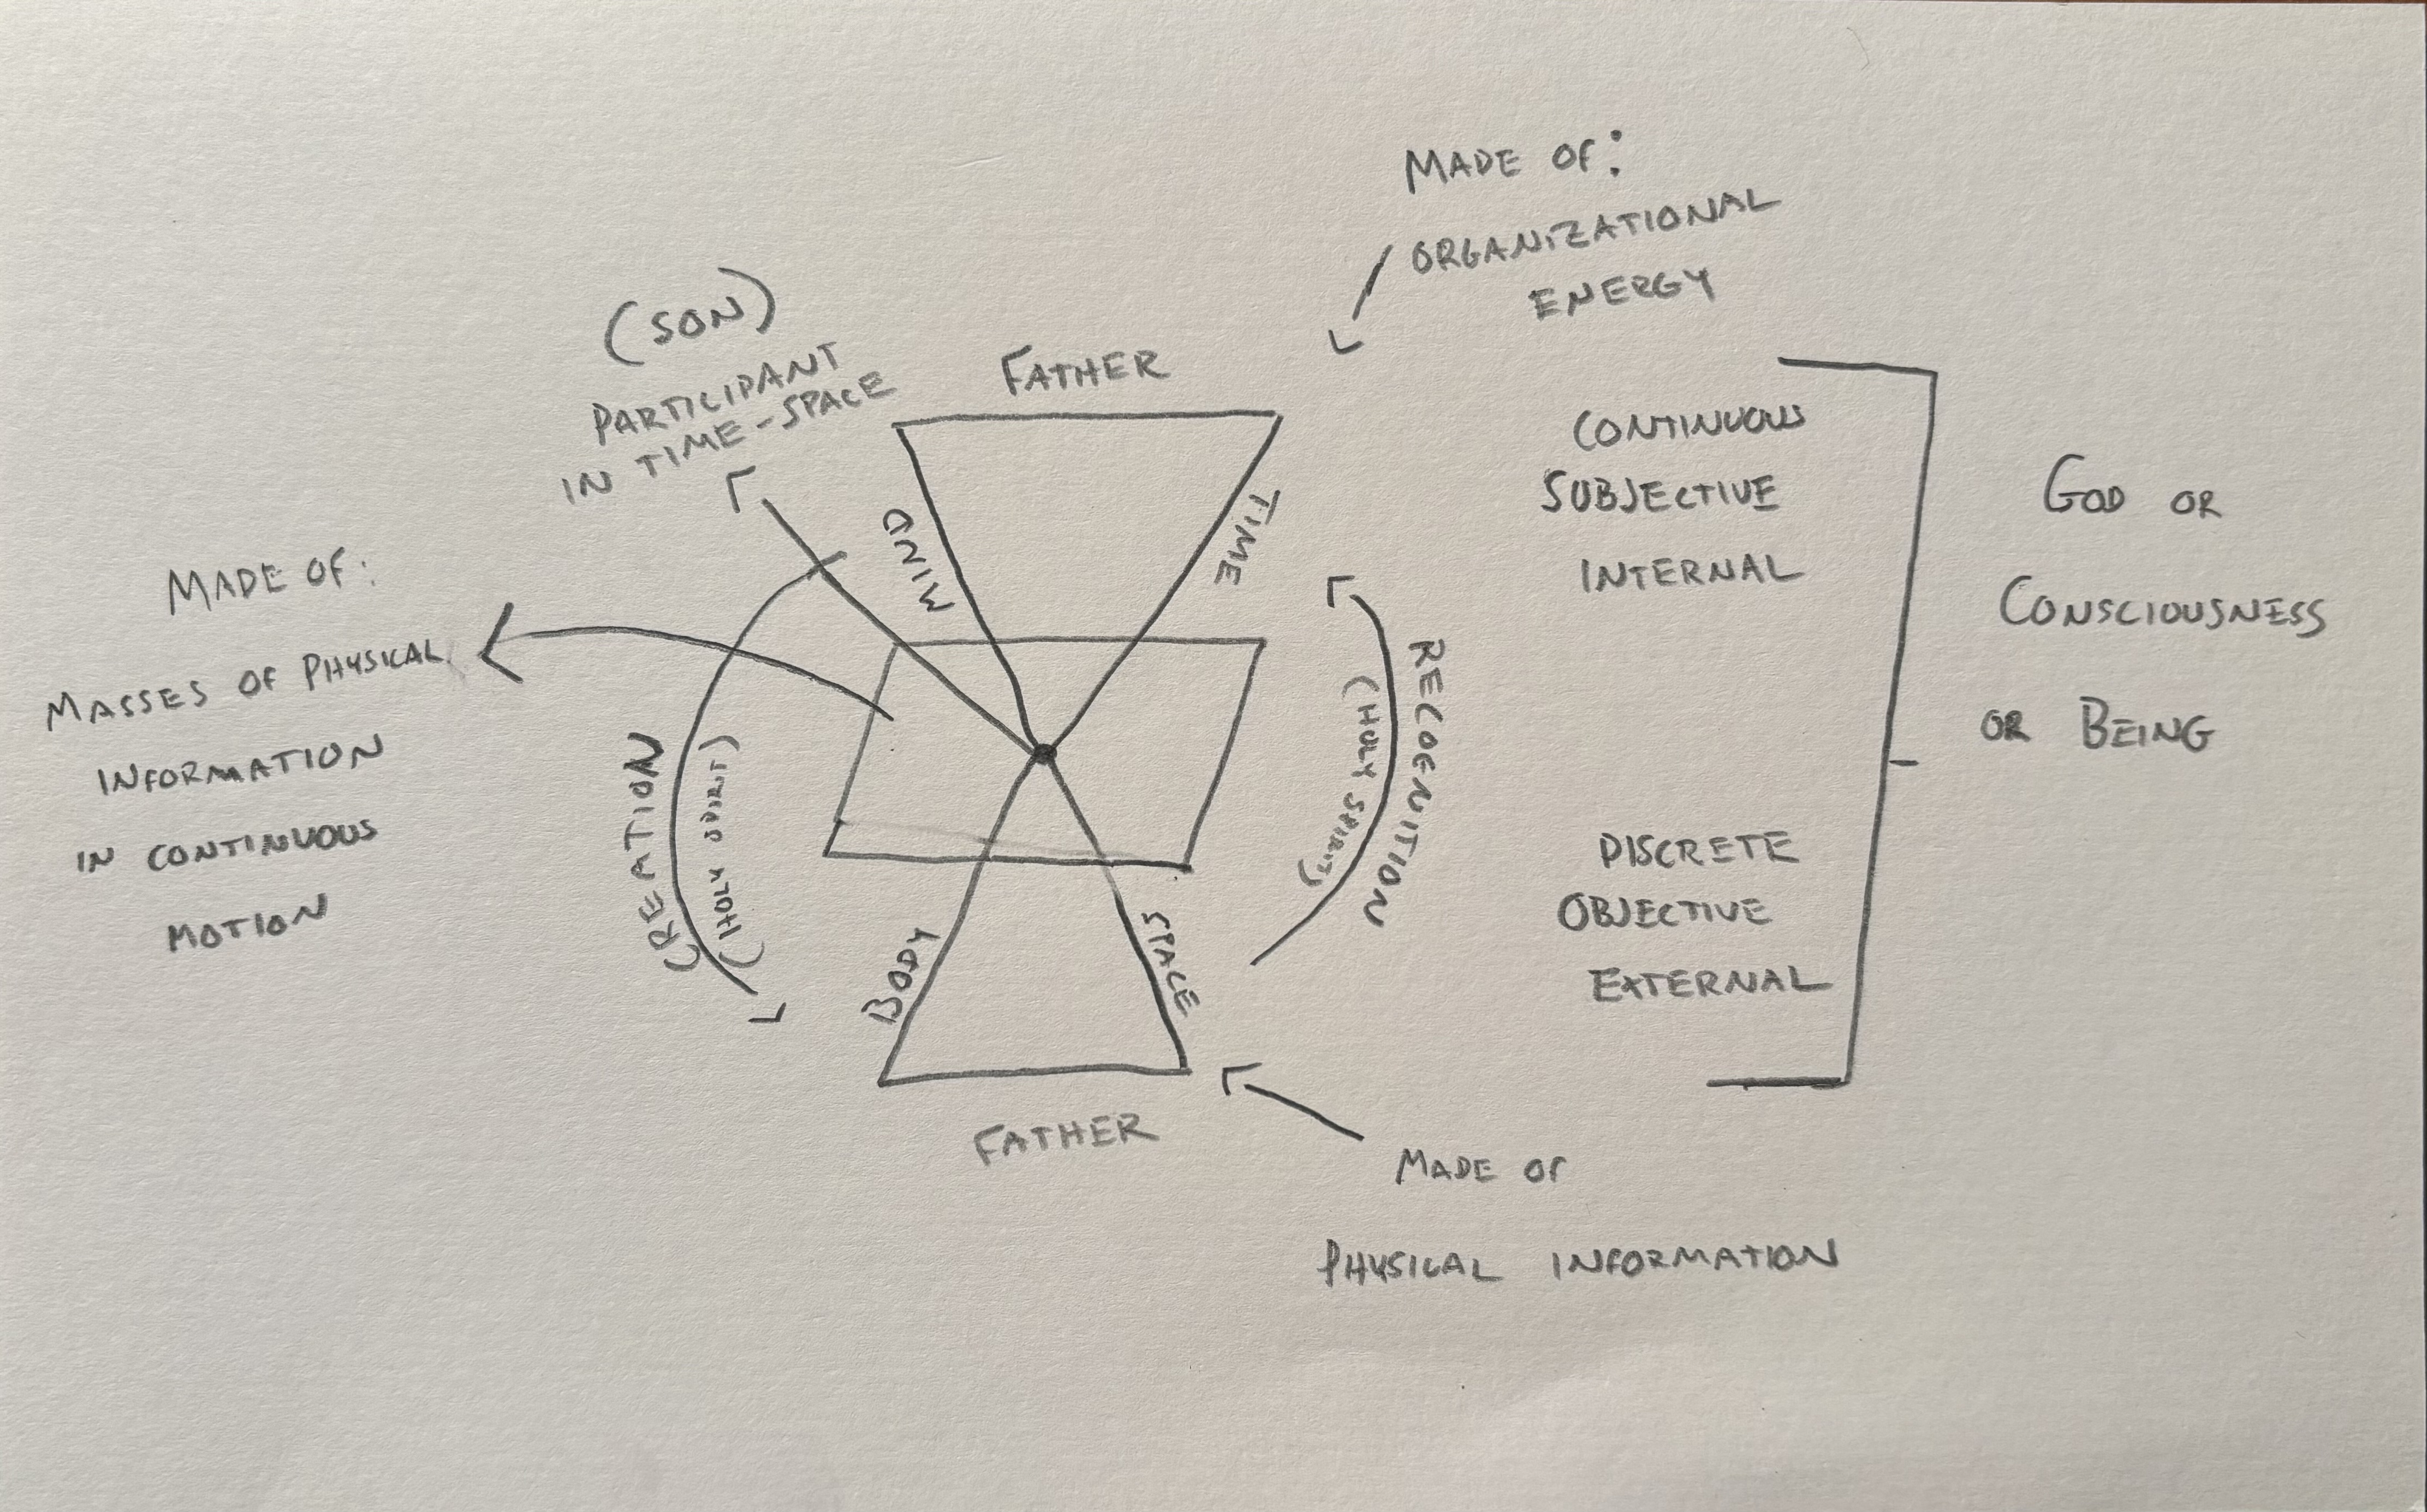 MADE OF:
ORGANIZATIONAL
ENERGY
(SON)
PARTICIPANT
IN TIME-SPACE
FATHER
MIND
TIME
CONTINUOUS
SUBJECTIVE
INTERNAL
GOD OR
CONSCIOUSNESS
OR BEING
MADE OF:
MASSES OF PHYSICAL
INFORMATION
IN CONTINUOUS
MOTION
CREATION
(HOLY SPIRIT)
RECOGNITION
(HOLY SPIRIT)
DISCRETE
OBJECTIVE
EXTERNAL
BODY
SPACE
FATHER
MADE OF
PHYSICAL INFORMATION